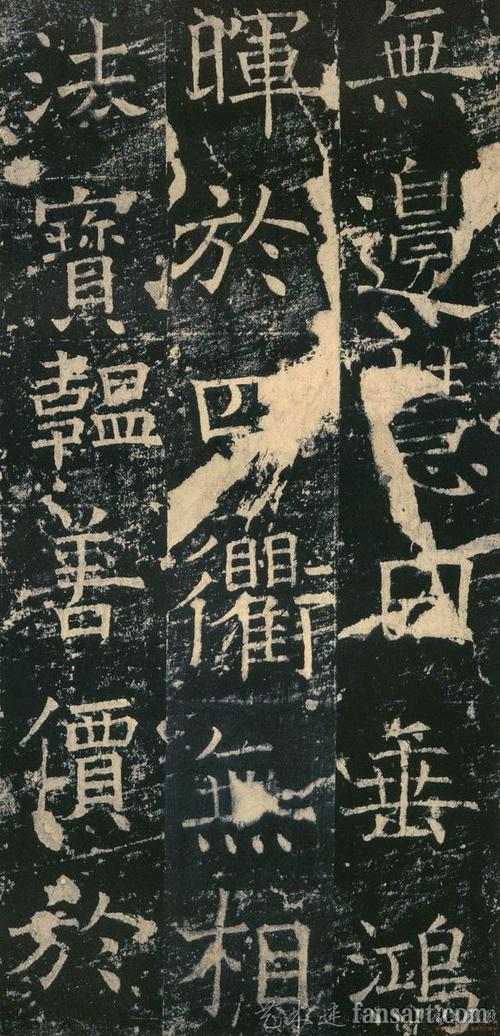 無邊慧日垂鴻
暉於四衢無相
法寶韞善價於
fansart.com